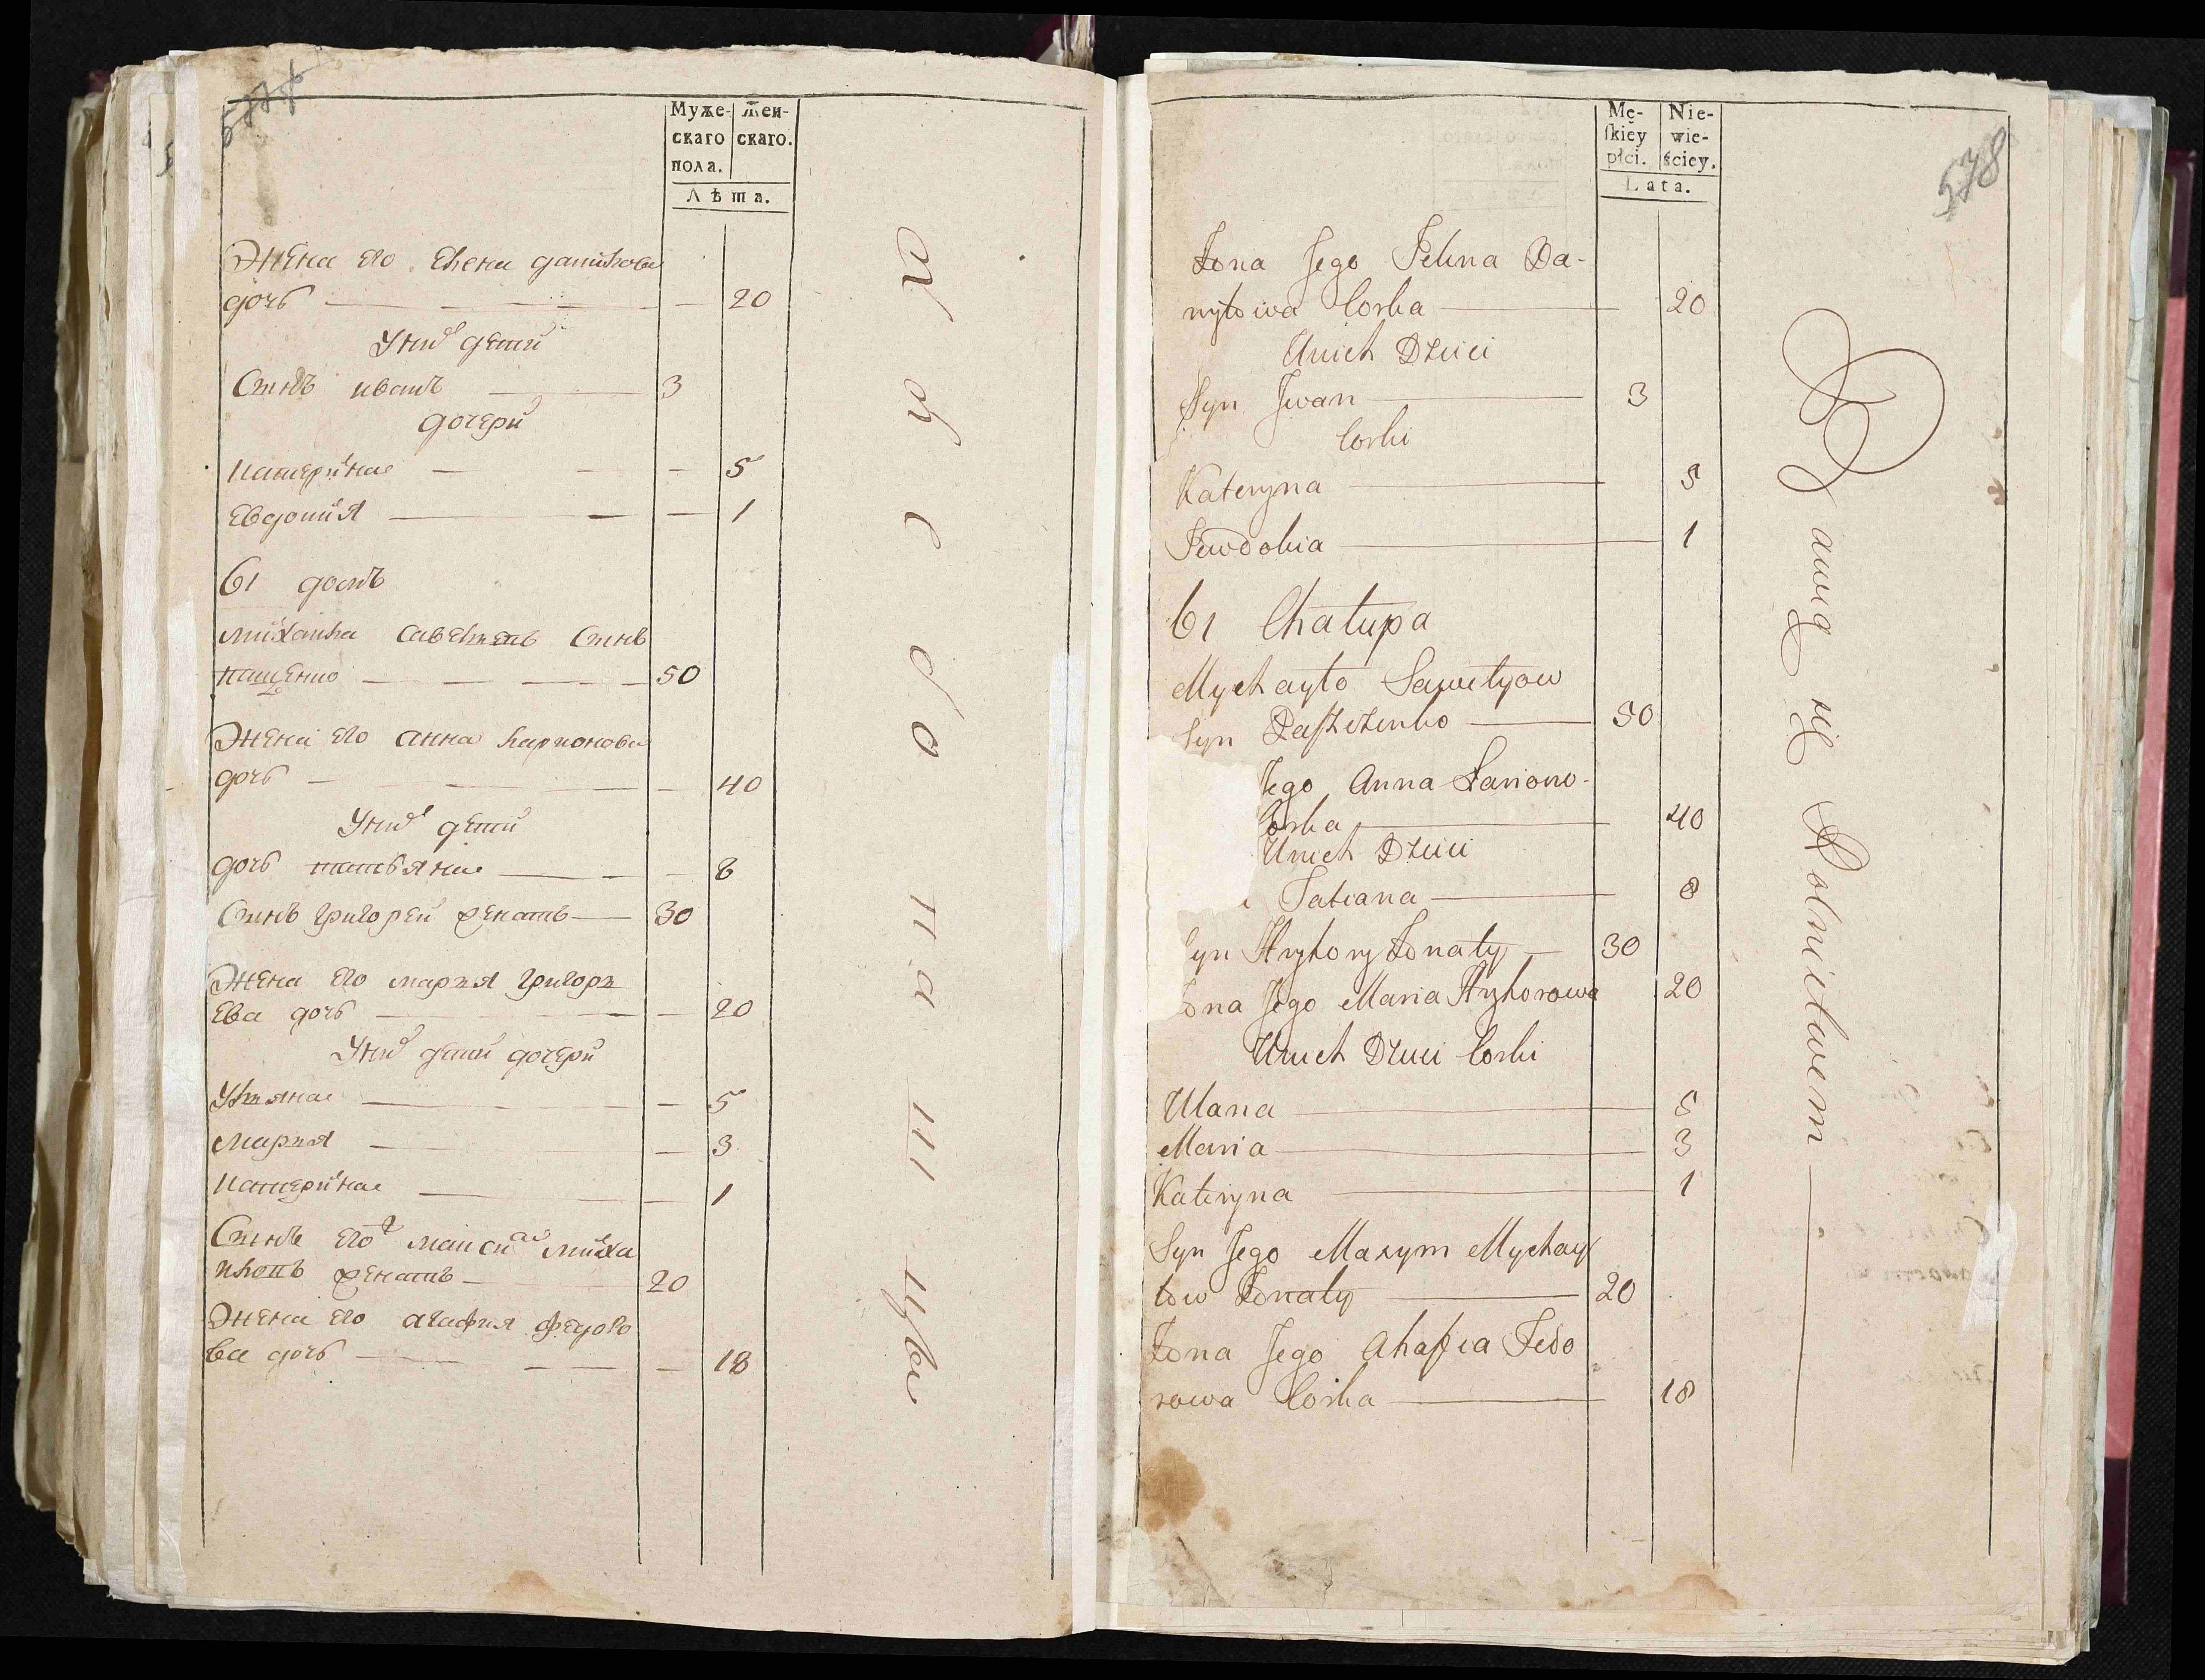 Муже-
скаго
пола.
Жен-
скаго.
Лѣта.
Жена его Елена данилова
дочь 20
У них дети
Сынъ иванъ 3
дочери
катерина 5
Евдокия 1
61 домъ
михаила савельевъ Сынъ
пащенко 50
Жена его анна ларионова
дочь 40
У них дети
дочь татьяна 8
Сынъ григорей женатъ 30
Жена его марья григорь
ева дочь 20
У них дети дочери
Ульяна 5
Марья 3
катерина 1
Сынъ его максим миха
иловъ женатъ 20
Жена его агафия федоро
ва дочь 18
578
Mę-
ſkiey
płci.
Nie-
wie-
ściey.
Lata.
Żona Jego Jelina Da-
nyłowa Corka 20
Unich Dzieci
Syn Jwan 3
Corki
Kateryna 5
Jewdokia 1
61 Chałupa
Mychayło Sawełyow
Syn Paſzczenko 50
Jego Anna Łariono-
Corka 40
Unich Dzieci
Tatiana 8
yn Hryhory Żonaty 30
ona Jego Maria Hryhorowa 20
Unich Dzieci Corki
Ulana 5
Maria 3
Kateryna 1
Syn Jego Maxym Mychay
łow Żonaty 20
Żona Jego Ahafia Fedo
rowa Corka 18
Bawią się Rolnictwem